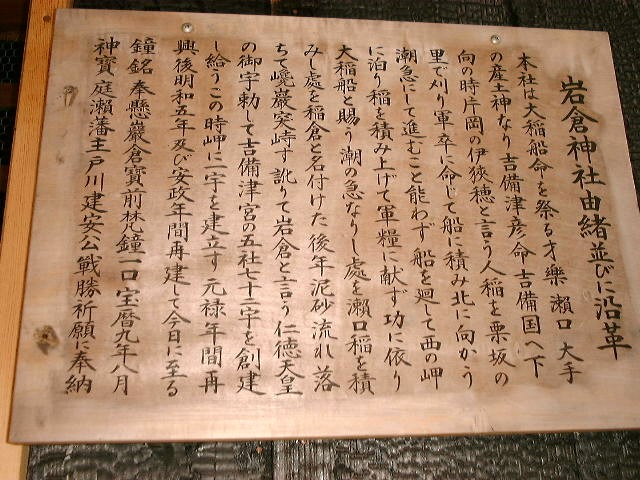 岩倉神社由緒並びに沿革
本社は大稲船命を祭る才樂 瀬口 大手
の産土神なり吉備津彦命吉備国へ下
向の時片岡の伊狹穂と言う人稲を栗坂の
里で刈り軍卒に命じて船に積み北に向かう
潮急にして進むこと能わず 船を廻して西の岬
に泊り稲を積み上げて軍糧に献ず功に依り
大稲船と賜う潮の急なりし處を瀬口稲を積
みし處を稲倉と名付けた 後年泥砂流れ落
ちて巉巌突峙す 訛りて岩倉と言う 仁徳天皇
の御宇勅して吉備津宮の五社七十二宇を創建
し給うこの時岬に一宇を建立す 元禄年間再
興後明和五年及び安政年間再建して今日に至る
鐘銘 奉懸巌倉寶前梵鐘一口 宝暦九年八月
神寶 庭瀬藩主戸川建安公戦勝祈願に奉納